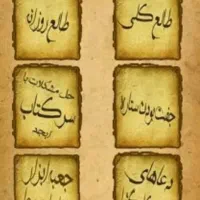 طالع کلی
طالع روزانه
جفت بودن ستاره
حل مشکلات با
سر کتاب
ابجد
دعاهای
جعبه ابزار